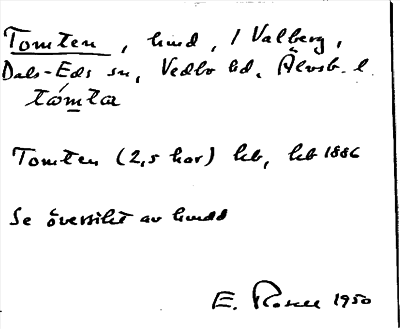 Tomten, hmd, / Valberg,
Dals-Eds sn, Vedbo hd. Älvsb. l.
tómta
Tomten (2,5 har) hb, hb 1886
Se översikt av hmdd
E. Rosell 1950